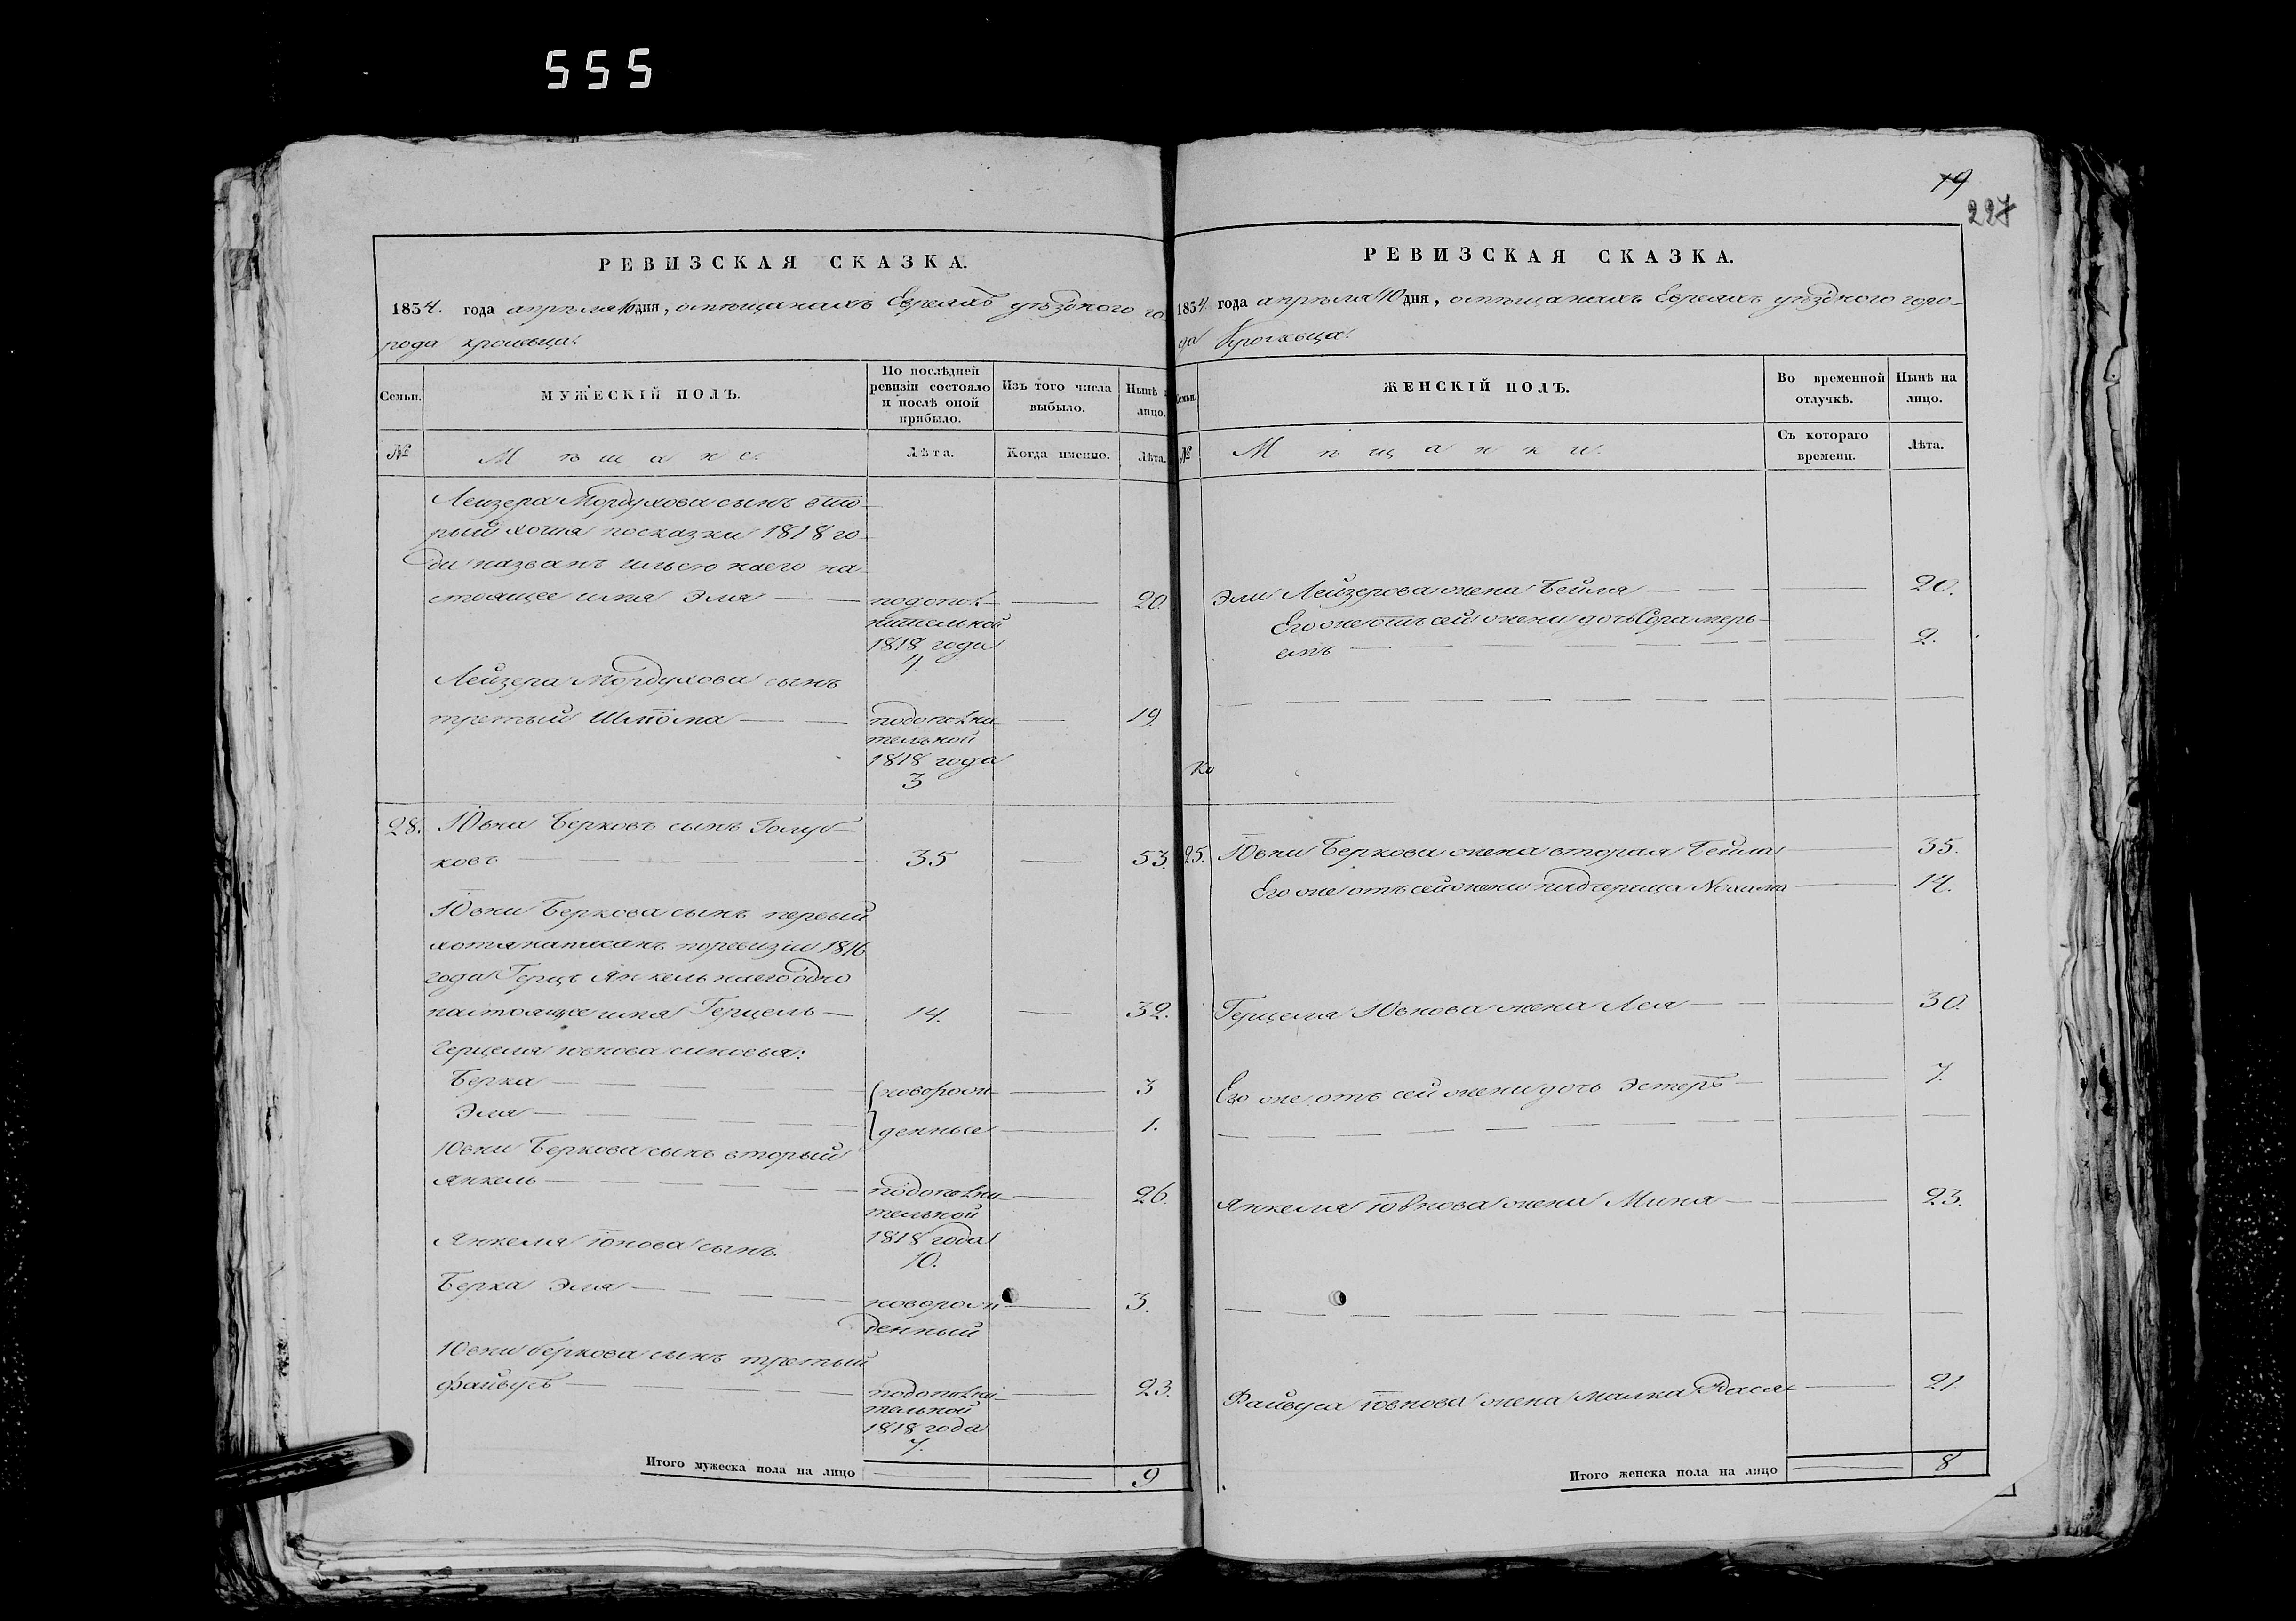 555
19
227
РЕВИЗСКАЯ СКАЗКА.
1834. года апрѣля 10 дня, о мѣщанахъ Евреяхъ уѣзднаго го
рода кролевца.
Семьи.
МУЖЕСКІЙ ПОЛЪ.
По послѣдней ревизіи состояло и послѣ оной прибыло.
Изъ того числа выбыло.
Нынѣ на лицо.
№
Мѣщане.
Лѣта.
Когда именно.
Лѣта.
Лейзера Мордухова сынъ вто-
рый хотя по сказки 1818 го-
да названъ ильею но его на-
стоящее имя Эля — — по дополнительной 1818 года 4 — 20.
Лейзера Мордухова сынъ
третый Шлiома — — по дополнительной 1818 года 3 — 19.
28. Ювна Берковъ сынъ Голуб-
ковъ — 35 — 53.
Ювни Беркова сынъ первый
хотя написанъ по ревизіи 1816
года Герцъ Янкель но его одно
настоящее имя Герцель — 14. — 32.
Герцеля ювнова сыновья:
Берка — — новорож- — 3
Эля — — денные — 1.
Ювни Беркова сынъ вторый
Янкель — — по дополнительной 1818 года 10. — 26.
Янкеля сынъ.
Берка Эля — — новорожденный — 3.
Ювни беркова сынъ третый
файвусъ — — по дополнительной 1818 года 7. — 23.
Итого мужеска пола на лицо — — 9
РЕВИЗСКАЯ СКАЗКА.
1834 года апрѣля 10 дня, о мѣщанахъ Евреяхъ уѣзднаго горо-
да Кролевца.
Семьи.
ЖЕНСКІЙ ПОЛЪ.
Во временной отлучкѣ.
Нынѣ на лицо.
№
Мѣщанки.
Съ котораго времени.
Лѣта.
Эли Лейзерова жена Бейля — — 20.
Его же отъ сей жены дочь Сора мерь-
— — 2.
25. Ювни Беркова жена вторая Бейла — 35.
Его же отъ сей жены падчерица Нехама — 14.
Герцеля Ювнова жена Ася — — 30.
Его же отъ сей жены дочь Эстеръ — — 7.
Янкеля ювнова жена Миня — — 23.
Файвуса ювнова жена малка — 21
Итого женска пола на лицо — 8